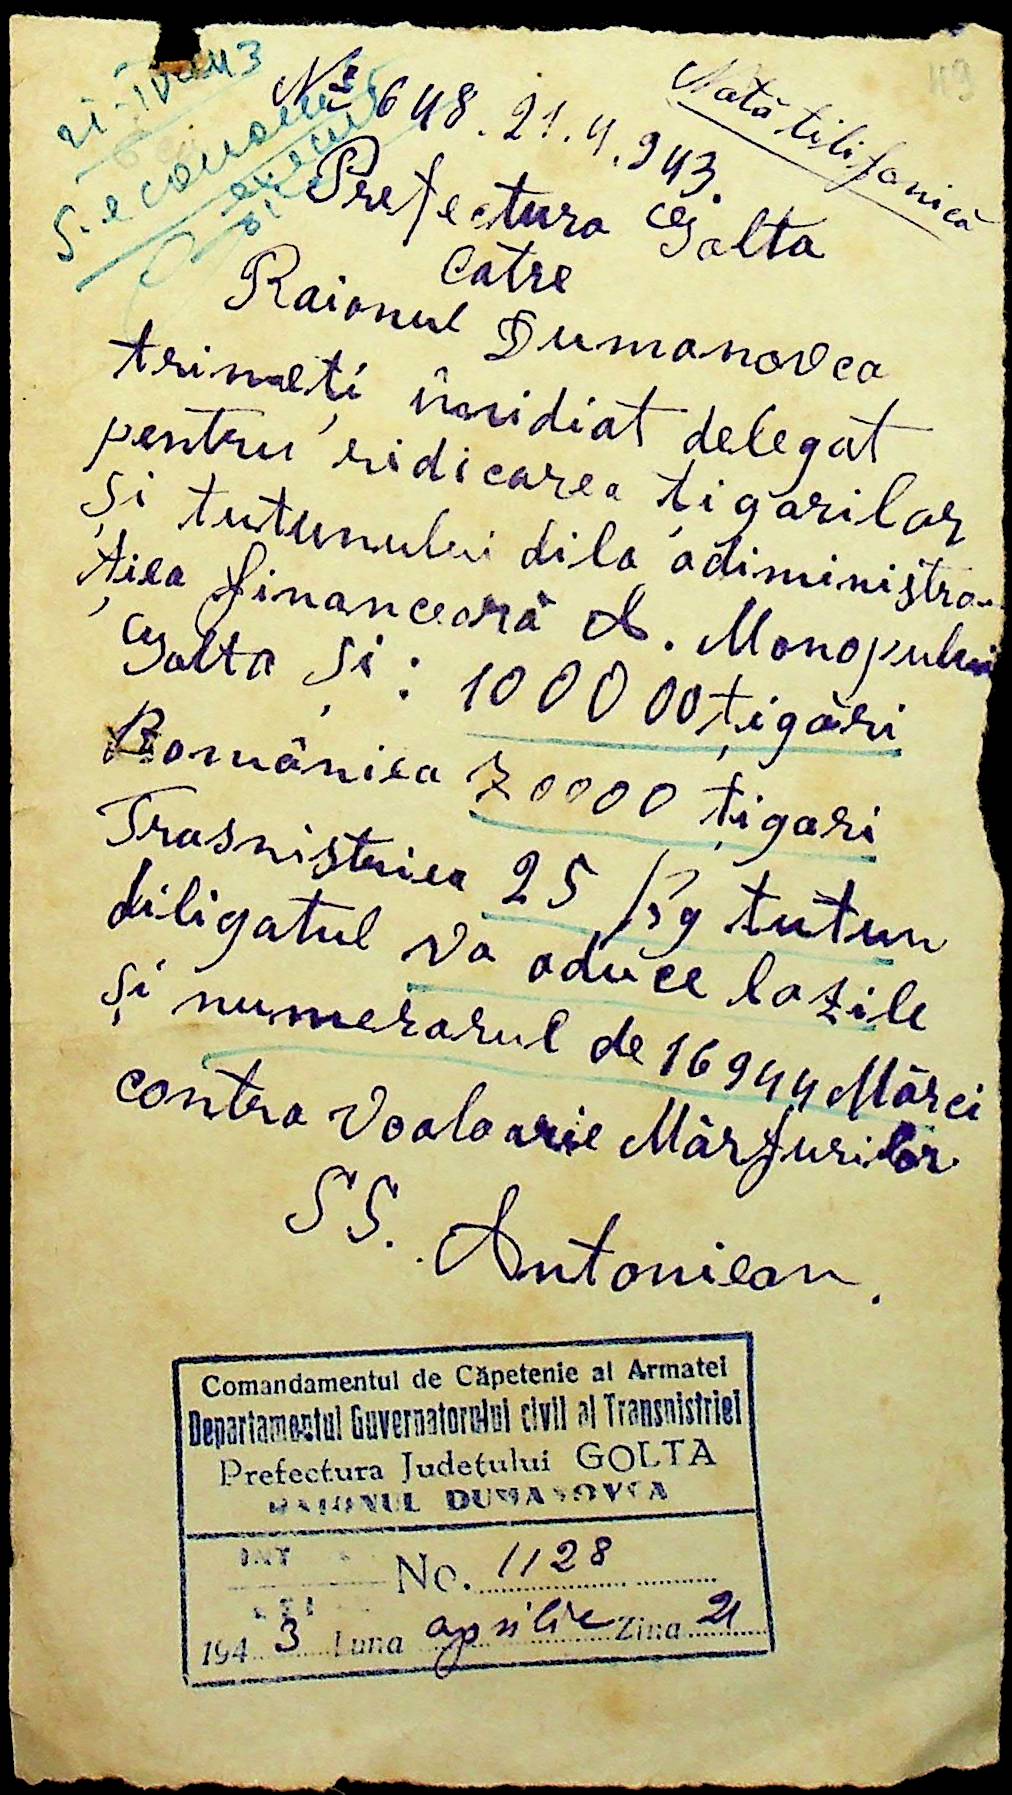 49
21-IV-943
S. economic
Nº 648. 21.4.943.
Notă tilifonică
Prefectura Golta
Catre
Raionul Dumanovca
trimeți imidiat delegat
pentru ridicarea țigarilor
și tutunului dila adiminiștra-
țiea financeară A. Monopului
Golta și : 100000 țigări
Româniea 70000 țigari
Trasniștriea 25 kg tutun
diligatul va aduce lazile
și numerarul de 16944 Mărci
contra Voaloarie Mărfurilor
SS. Antoniean.
Comandamentul de Căpetenie al Armatei
Departamentul Guvernatorului civil al Transnistriei
Prefectura Județului GOLTA
RAIONUL DUMANOVCA
INT
No. 1128
EȘI
1943 Luna aprilie Ziua 21